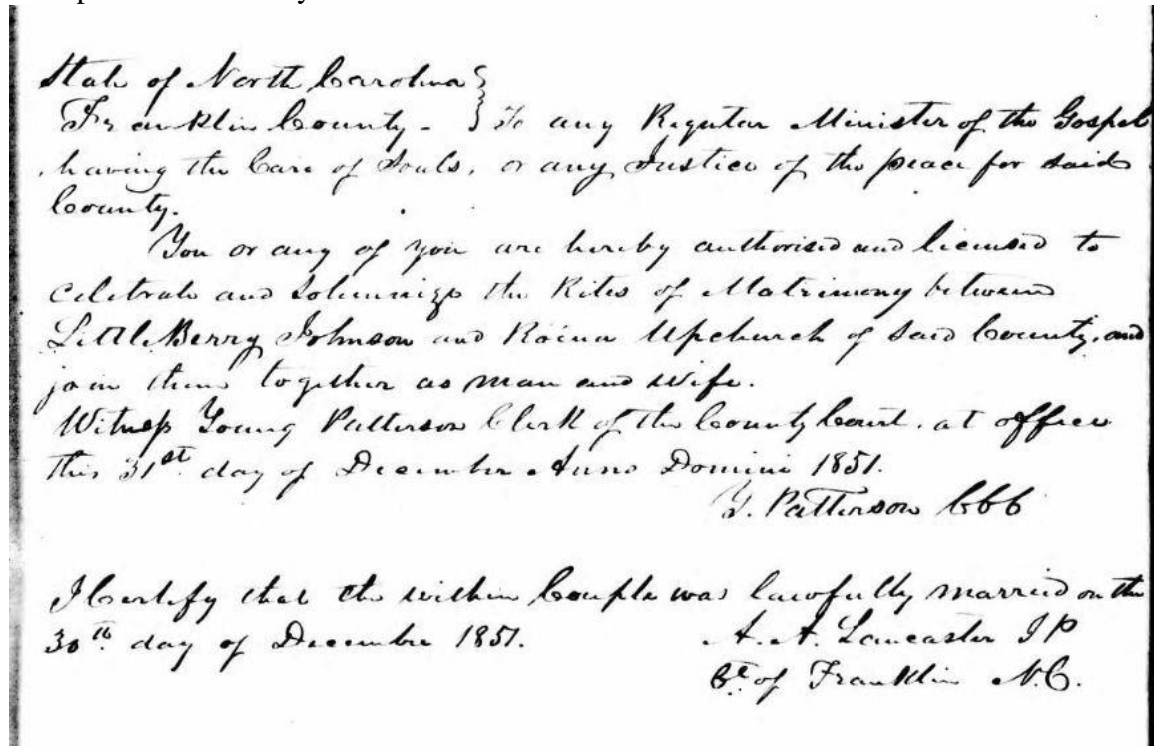 State of North Carolina }
Franklin County - } To any Regular Minister of the Gospel
having the Care of Souls, or any Justice of the peace for said
County.
You or any of you are hereby authorised and licensed to
Celebrate and Solemnize the Rites of Matrimony between
LittleBerry Johnson and Upchurch of said County, and
join them together as man and wife.
Witness Young Patterson Clerk of the County Court, at office
this 31st day of December Anno Domini 1851.
Y. Patterson CCC
I Certify that the within Couple was lawfully married on the
30th day of December 1851. A. A. Lancaster JP
Ct. of Franklin N.C.